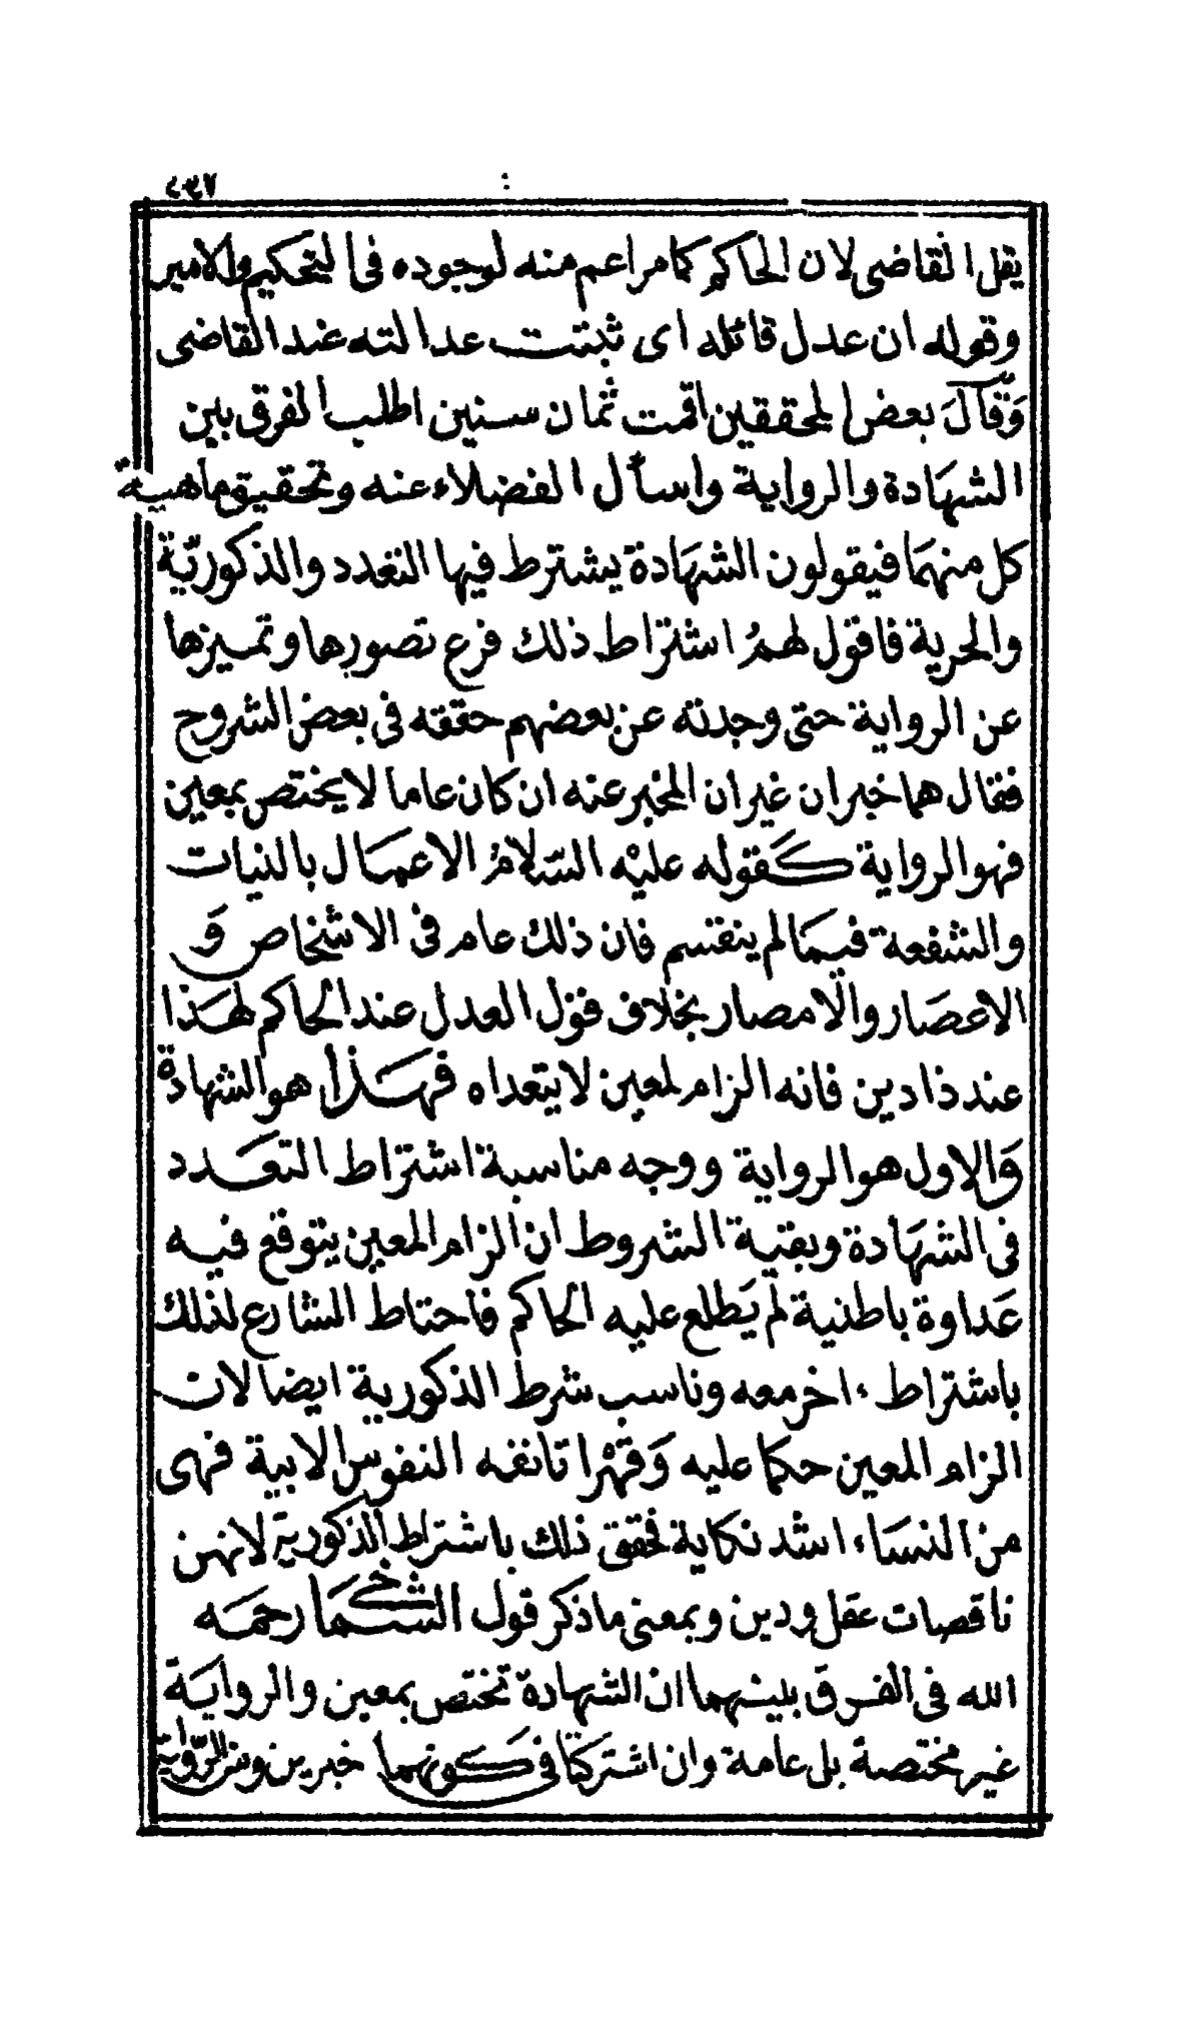 ٢٣٧
يقل القاضى لان الحاكم كما مر اعم منه لوجوده فى التحكيم والامير
وقوله ان عدل قائله اى ثبتت عدالته عند القاضى
وَقَالَ بعض المحققين اقمت ثمان سنين اطلب الفرق بين
الشهادة والرواية واسأل الفضلاء عنه وتحقيق ماهية
كل منهما فيقولون الشهادة يشترط فيها التعدد والذكورية
والحرية فاقول لهم اشتراط ذلك فرع تصورها وتميزها
عن الرواية حتى وجدته عن بعضهم حققه فى بعض الشروح
فقال هما خبران غير ان المخبر عنه ان كان عاما لا يختص بمعين
فهو الرواية كقوله عليه السّلام الاعمال بالنيات
والشفعة فيما لم ينقسم فان ذلك عام فى الاشخاص وَ
الاعصار والامصار بخلاف قول العدل عند الحاكم لهذا
عند ذا دين فانه الزام لمعين لا يتعداه فهذا هو الشهادة
وَالاول هو الرواية ووجه مناسبة اشتراط التعدد
فى الشهادة وبقية الشروط ان الزام المعين يتوقع فيه
عَداوة باطنية لم يَطلع عليه الحاكم فاحتاط الشارع لذلك
باشتراط ء اخر معه وناسب شرط الذكورية ايضا لان
الزام المعين حكما عليه وَقهْرا تانفه النفوس الابية فهى
من النساء اشد نكاية فحقق ذلك باشتراط الذكورية لانهن
ناقصات عقل ودين وبمعنى ما ذكر قول الشخما رحمه
الله فى الفرق بينهما ان الشهادة تختص بمعين والرواية
غير مختصة بل عامة وان اشتركتا فى كونهما خبرين ومن الرّواية